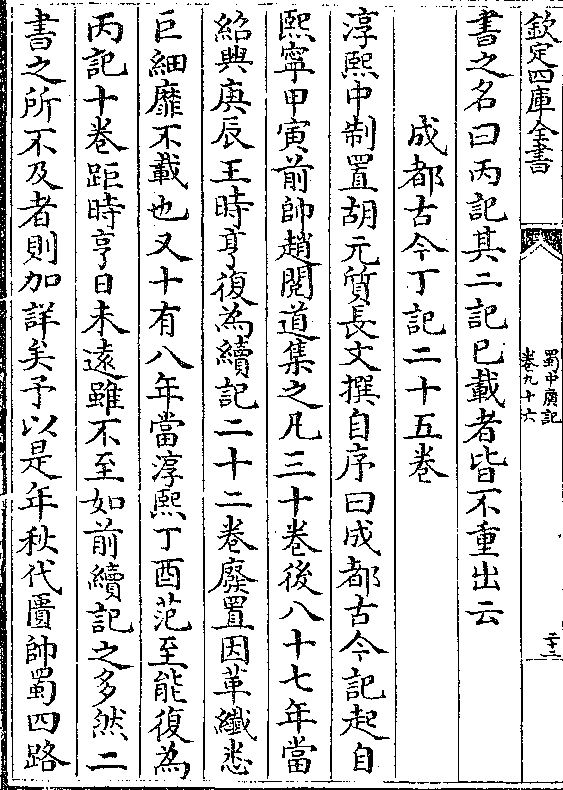 欽定四庫全書
蜀中廣記
卷九十六
二十三
書之名曰丙記其二記已載者皆不重出云
成都古今丁記二十五卷
淳熙中制置胡元質長文撰自序曰成都古今記起自
熙寧甲寅前帥趙閱道集之凡三十卷後八十七年當
紹興庚辰王時亨復為續記二十二卷廢置因革纖悉
巨細靡不載也又十有八年當淳熙丁酉范至能復為
丙記十卷距時亨日未遠雖不至如前續記之多然二
書之所不及者則加詳矣予以是年秋代匱帥蜀四路